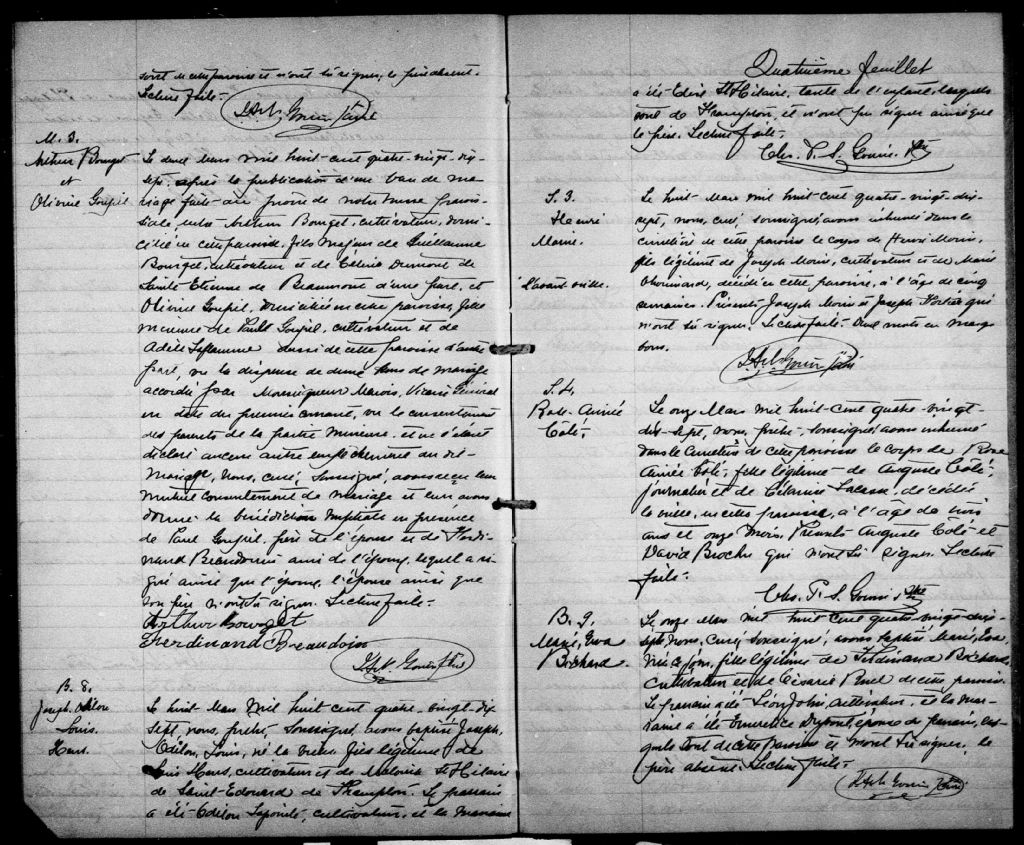 sont de cette paroisse et n'ont su signer, le père absent.
Lecture faite.-
Ptre
M. 3.
Arthur Bourget
et
Olivine Goupil
Le deux Mars mil huit cent quatre-vingt-dix-
sept, après la publication d'un ban de ma-
riage faite au prône de notre messe parois-
siale entre Arthur Bourget, cultivateur, domi-
cilié en cette paroisse, fils majeur de Guillaume
Bourget, cultivateur et de Célina Dumont de
Sainte Etienne de Beaumont d'une part, et
Olivine Goupil, domiciliée en cette paroisse, fille
mineure de Paul Goupil, cultivateur et de
Adèle Laflamme aussi de cette paroisse d'autre
part, vu la dispense de deux bans de mariage
accordée par Monseigneur Marois, Vicaire Général
en date du premier courant, vu le consentement
des parents de la partie mineure, et ne s'étant
déclaré aucun autre empêchement au dit
Mariage, Nous, curé, soussigné, avons reçu leur
mutuel consentement de mariage et leur avons
donné la bénédiction nuptiale en présence
de Paul Goupil, père de l'épouse et de Ferdi-
nand Beaudoin ami de l'époux, lequel a si-
gné ainsi que l'époux, l'épouse ainsi que
son père n'ont su signer. Lecture faite.-
Arthur Bourget
Ferdinand Beaudoin
Ptre
B. 8.
Joseph Odilon
Louis
Le huit Mars mil huit cent quatre-vingt-dix
sept, nous, prêtre, soussigné, avons baptisé Joseph,
Odilon, Louis, né la veille, fils légitime de
Louis cultivateur et de St Hilaire
de Saint-Edouard de Frampton. Le parrain
a été Odilon Lapointe, cultivateur, et la marraine
Quatrième feuillet
a été St Hilaire, tante de l'enfant, lesquels
sont de Frampton, et n'ont pu signer ainsi que
le père. Lecture faite.-
Chs. P. S. Ptre
S. 3
Henri
Morin.
Le huit Mars mil huit cent quatre-vingt-dix-
sept, nous, curé, soussigné, avons inhumé dans le
cimetière de cette paroisse le corps de Henri Morin,
fils légitime de Joseph Morin, cultivateur et de Marie
décédé en cette paroisse, à l'âge de cinq
l'avant-veille.
semaines. Présents Joseph Morin et Joseph qui
n'ont su signer. Lecture faite. Deux mots en marge
bons.
Ptre
S. 4.
Rose-Aimée
Côté.
Le onze Mars mil huit-cent quatre-vingt-
dix-sept, nous, prêtre, soussigné, avons inhumé
dans le cimetière de cette paroisse le corps de Rose
Aimée Côté, fille légitime de Auguste Côté,
journalier et de Célanire Lacasse, décédée
la veille, en cette paroisse, à l'âge de trois
ans et onze mois. Présents Auguste Côté et
David Brochu qui n'ont su signer. Lecture
faite.-
Chs. P. S. Ptre
B. 9.
Marie, Eva
Bochard.
Le onze Mars mil huit cent quatre-vingt-dix-
sept, nous, curé, soussigné, avons baptisé Marie, Eva,
née ce jour, fille légitime de Ferdinand Bochard,
cultivateur et de Césarie Ruel de cette paroisse.
Le parrain a été Léon John, cultivateur, et la mar-
raine a été Emérence Dupont, épouse du parrain, les-
quels sont de cette paroisse et n'ont su signer, le
père absent. Lecture faite.-
Ptre